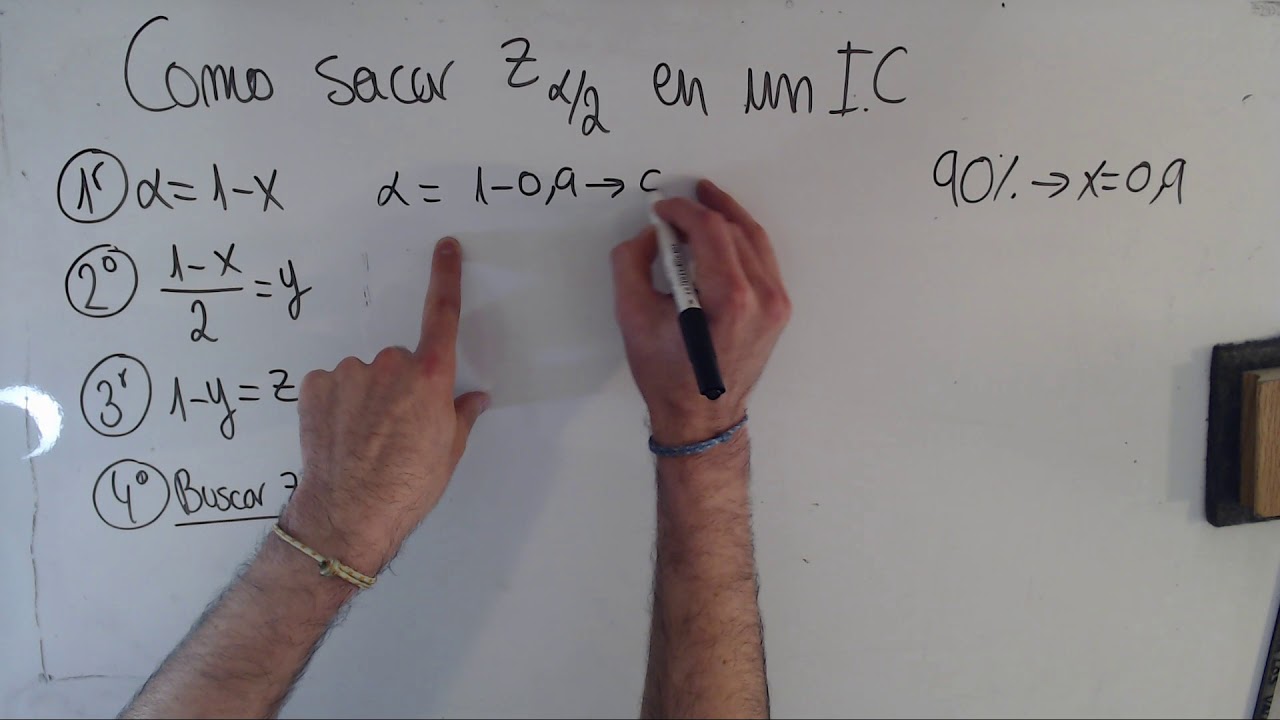 Como sacar Z α/2 en un I.C
1r α = 1-x α = 1-0,9 → 90% → x=0,9
2º (1-x)/2 = y
3r 1-y = z
4º Buscar